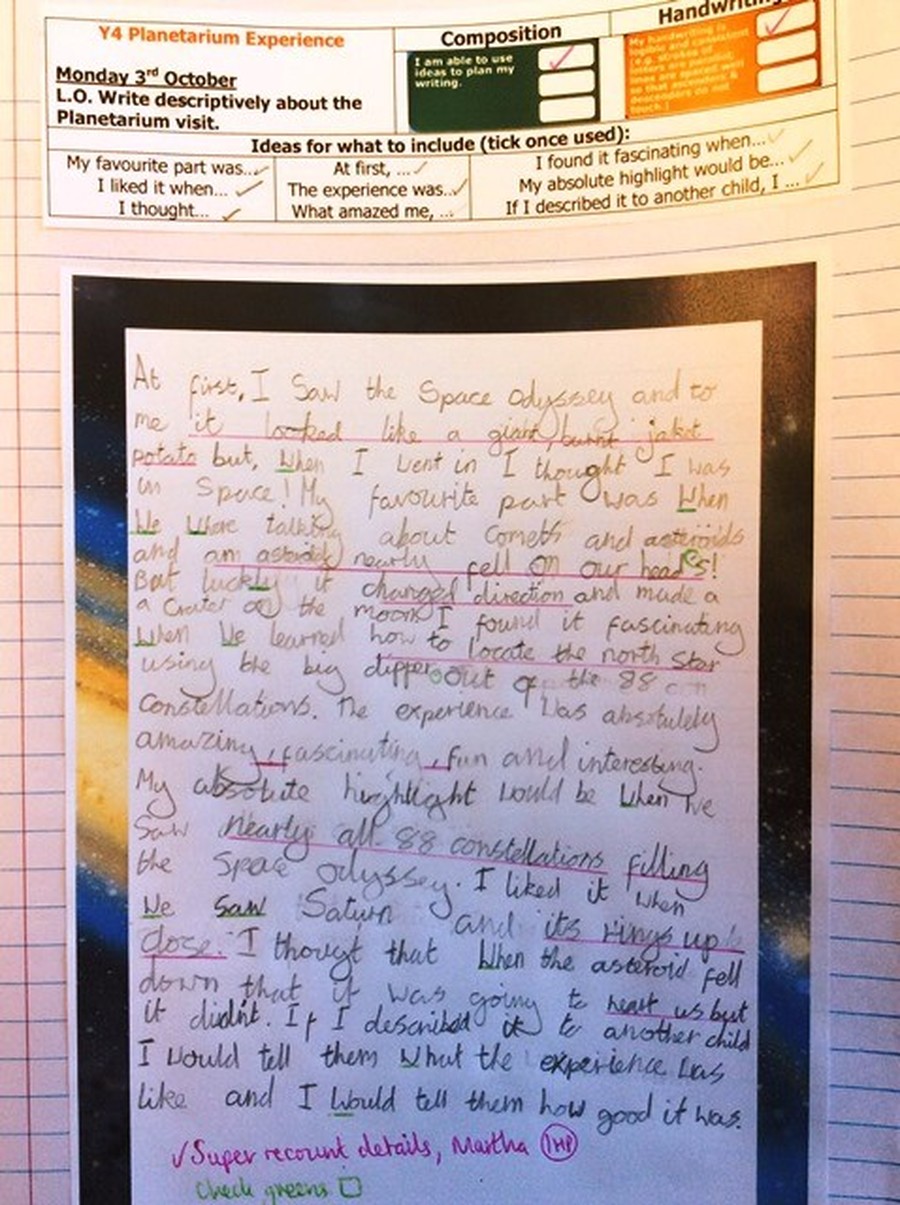 Y4 Planetarium Experience
Monday 3rd October
L.O. Write descriptively about the
Planetarium visit.
Composition
I am able to use
ideas to plan my
writing.
Handwriting
My handwriting is
legible and consistent
(e.g. strokes of
letters are parallel;
lines are spaced well
so that ascenders &
descenders do not
touch.)
Ideas for what to include (tick once used):
My favourite part was...
I liked it when...
I thought...
At first, ...
The experience was...
What amazed me, ...
I found it fascinating when...
My absolute highlight would be...
If I described it to another child, I ...
At first, I Saw the Space odyssey and to
me it looked like a giant, burnt jaket
potato but, When I went in I thought I was
in Space! My favourite part was When
We Where talking about Comets and asteroids
and am asteroid nearly fell on our heads!
But luckly it changed direction and made a
a Crater on the moon I found it fascinating
When We learned how to locate the north Star
using the big dipper out of the 88 con
Constellations. The experience Was absolutely
amazing, fascinating, fun and interesting.
My absolute highlight would be When We
Saw Nearly all 88 constellations filling
the Space odyssey. I liked it when
We saw Saturn and its rings up
close. I thougt that When the asteroid fell
down that it was going to heart us but
it didn't. If I described it to another child
I Would tell them What the experience Was
like and I Would tell them how good it was.
Super recount details, Martha 1HP
Check greens